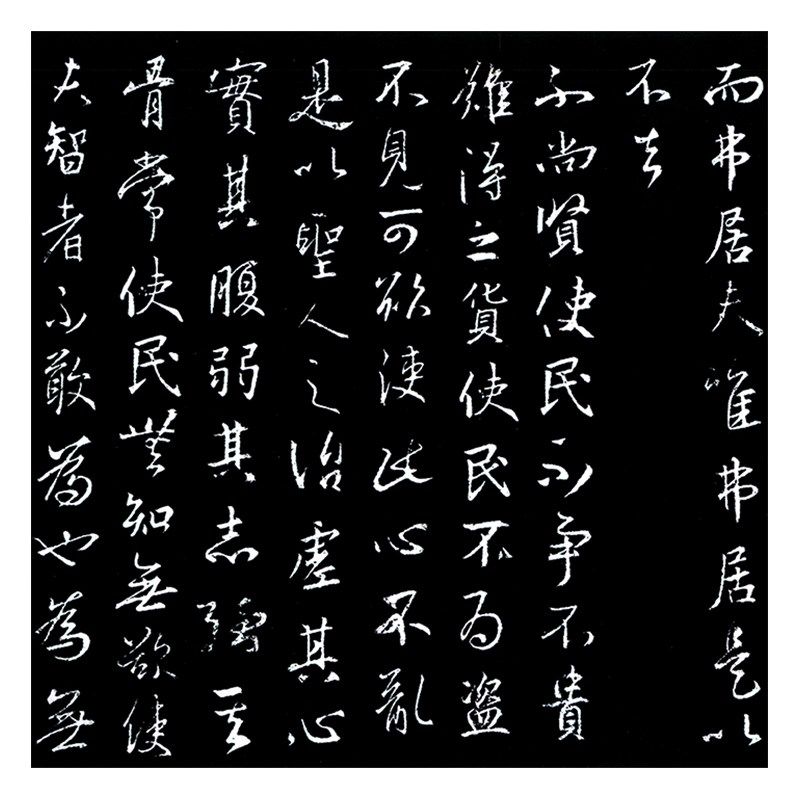 而弗居夫唯弗居是以
不去
不尚賢使民不爭不貴
難得之貨使民不為盜
不見可欲使民心不亂
是以聖人之治虛其心
實其腹弱其志強其
骨常使民無知無欲使
夫智者不敢為也為無